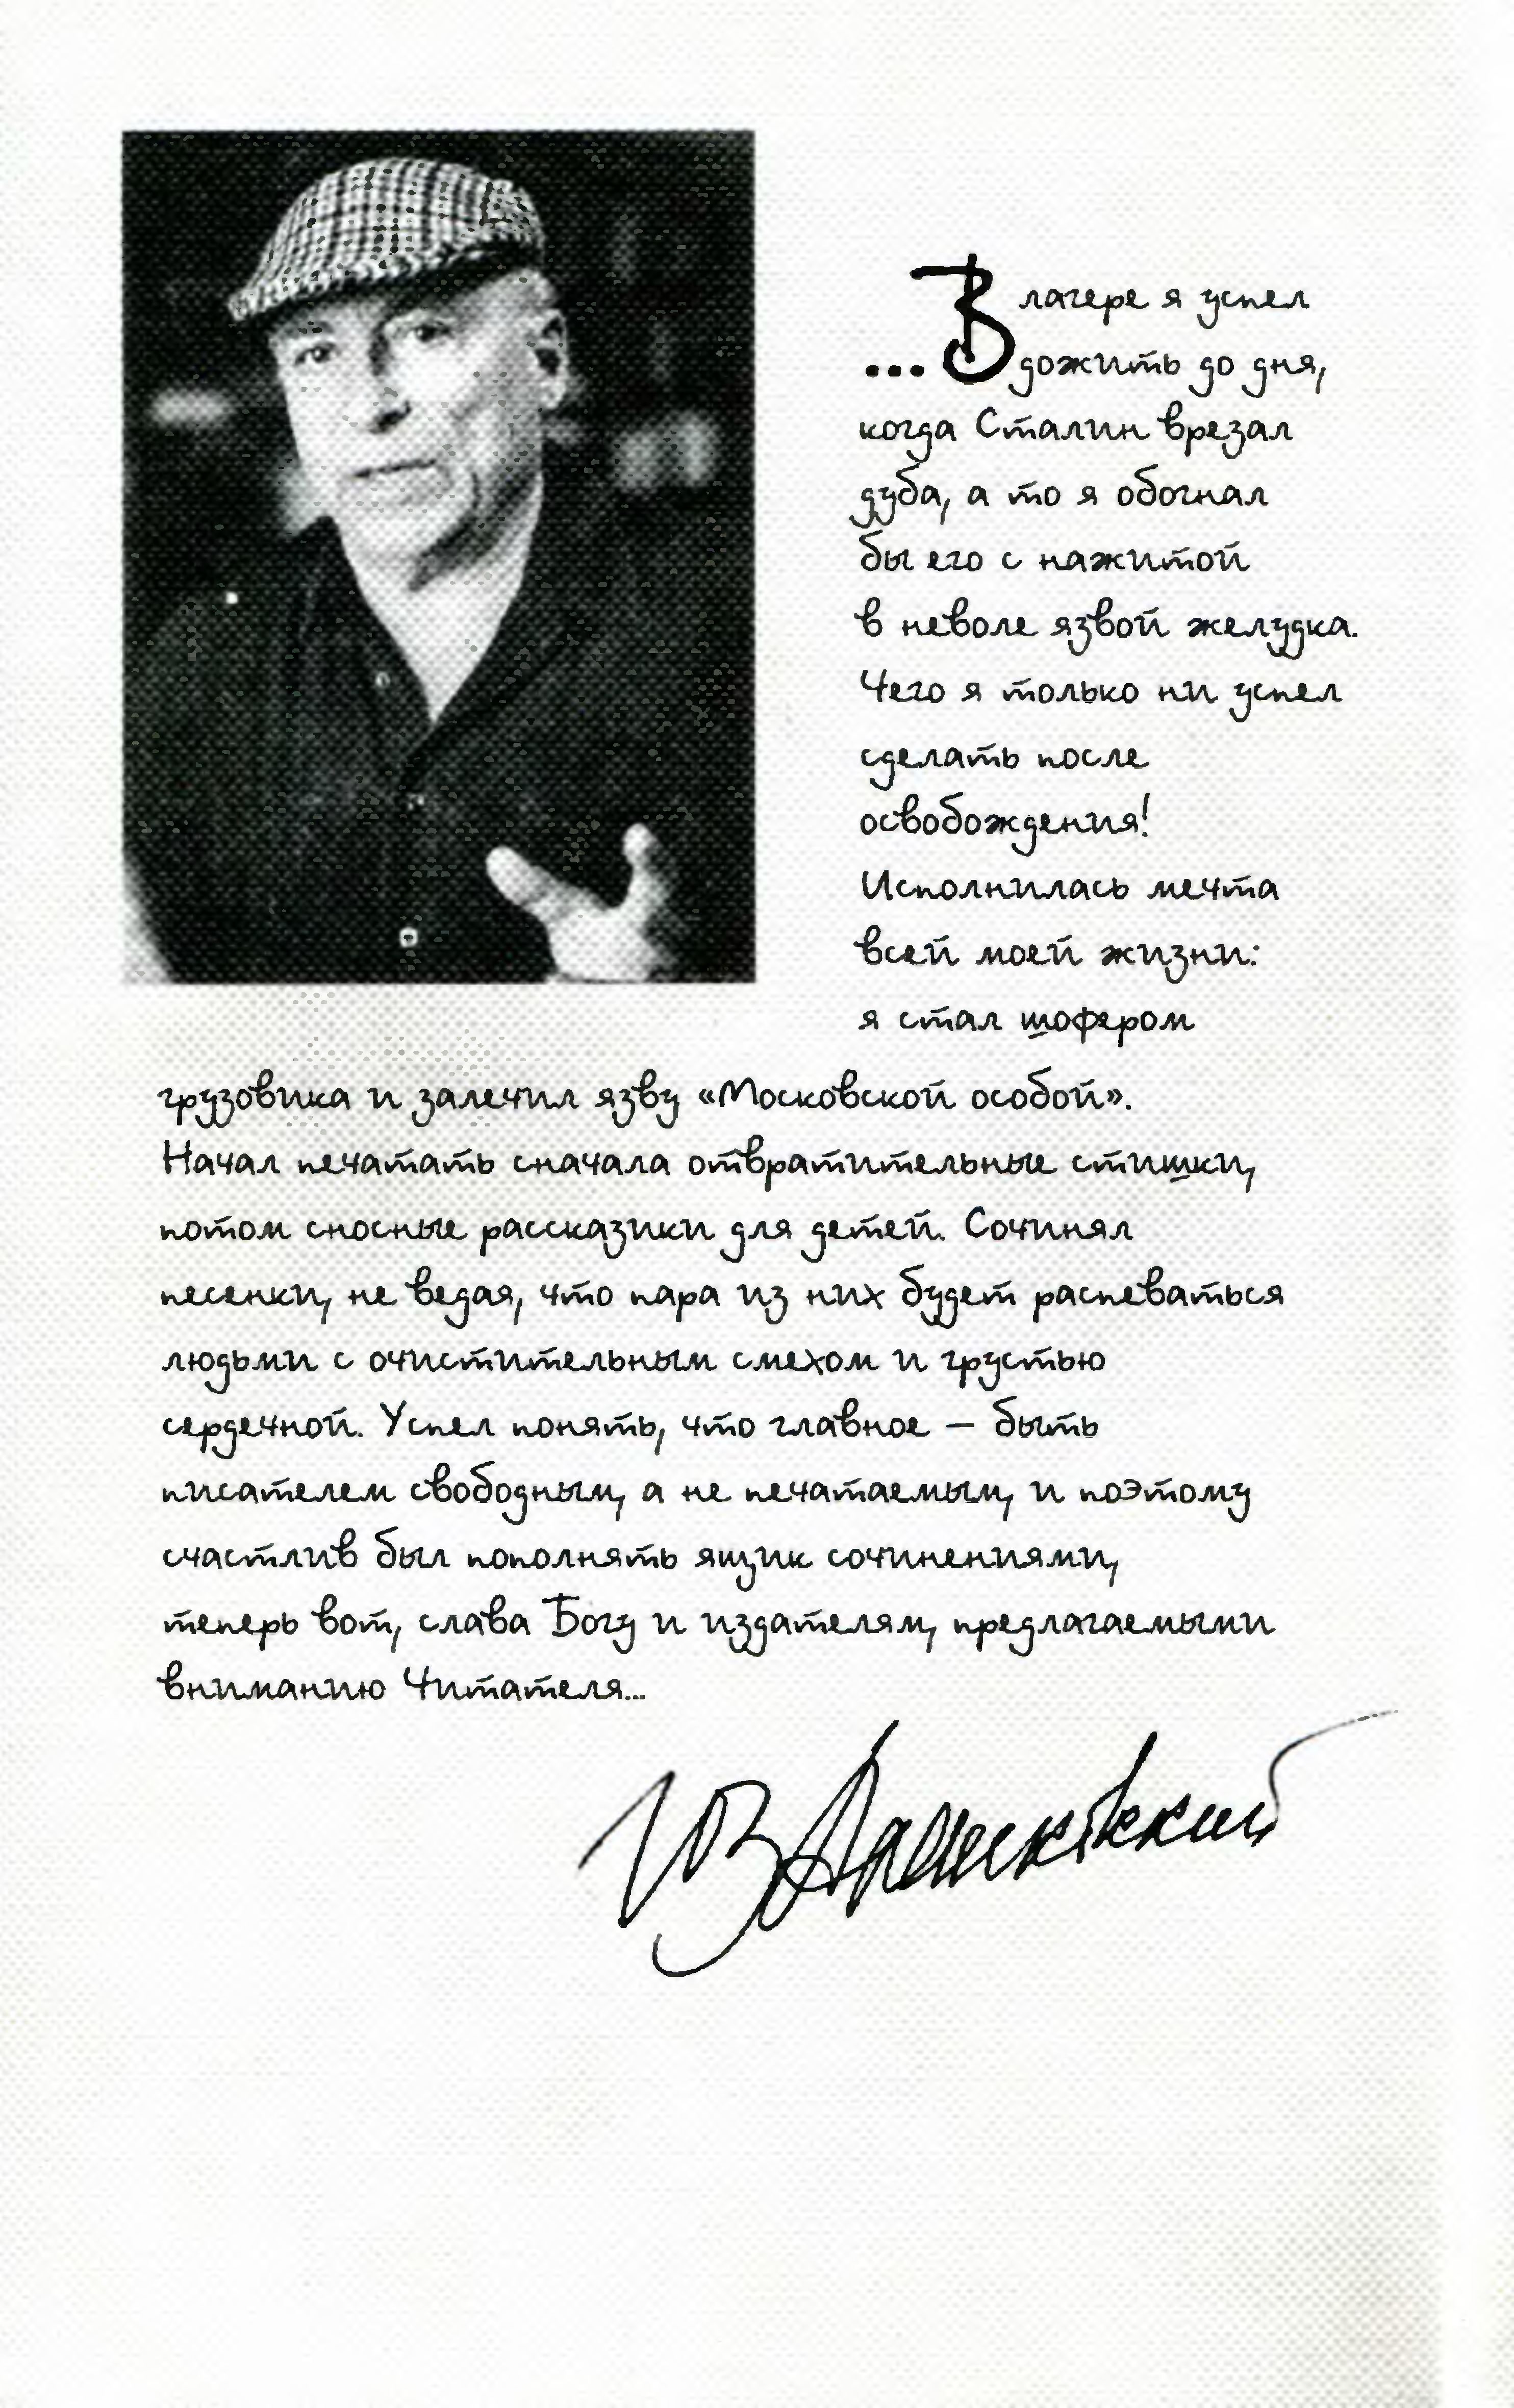 ... В лагере я успел
дожить до дня,
когда Сталин врезал
дуба, а то я обогнал
бы его с нажитой
в неволе язвой желудка.
Чего я только ни успел
сделать после
освобождения!
Исполнилась мечта
всей моей жизни:
я стал шофером
грузовика и залечил язву «Московской особой».
Начал печатать сначала отвратительные стишки,
потом сносные рассказики для детей. Сочинял
песенки, не ведая, что пара из них будет распеваться
людьми с очистительным смехом и грустью
сердечной. Успел понять, что главное – быть
писателем свободным, а не печатаемым, и поэтому
счастлив был пополнять ящик сочинениями,
теперь вот, слава Богу и издателям, предлагаемыми
вниманию Читателя...